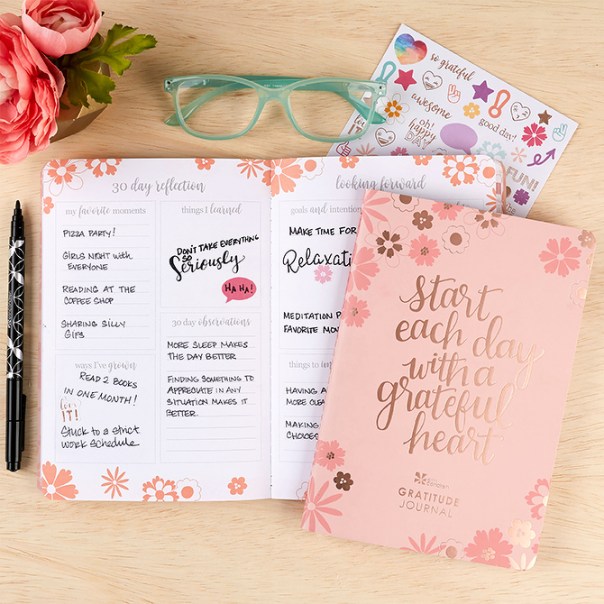 30 day reflection
my favorite moments
PIZZA PARTY!
GIRLS NIGHT with
EVERYONE
READING AT THE
COFFEE SHOP
SHARING SILLY
GIFS
ways I've grown
READ 2 BOOKS
IN ONE MONTH!
IT!
STUCK TO A STRICT
WORK SCHEDULE
things I learned
DON'T TAKE EVERYTHING
SO
Seriously
HA HA!
30 day observations
MORE SLEEP MAKES
THE DAY BETTER
FINDING SOMETHING TO
APPRECIATE IN ANY
SITUATION MAKES IT
BETTER.
looking forward
goals and intention
MAKE TIME FOR
Relaxatio
MEDITATION P
FAVORITE MOV
things to im
HAVING A
MORE CLEA
MAKING
CHOICES
so grateful
awesome
oh!
happy
DAY
good day!
FUN!
start
each day
with a
grateful
heart
GRATITUDE
JOURNAL